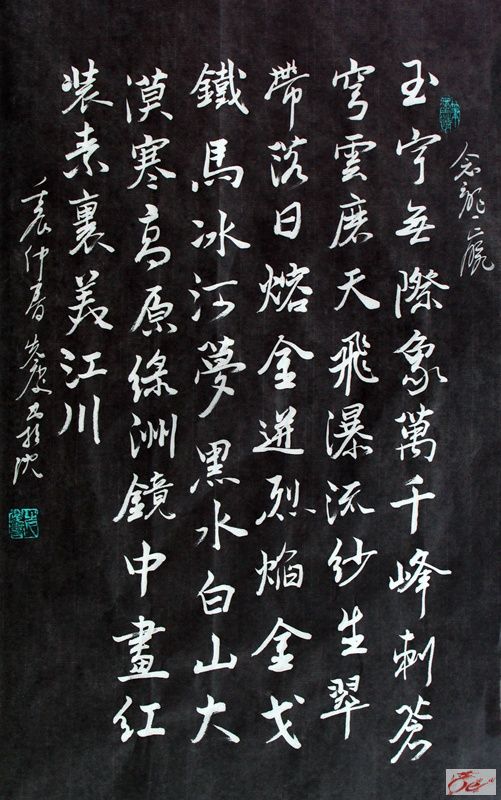 玉宇無際象萬千峰刺蒼
穹雲磨天飛瀑流紗生翠
帶落日熔金迸烈焰金戈
鐵馬冰河夢黑水白山大
漠寒高原綠洲鏡中畫紅
裝素裹美江川
壬辰仲春書於沈